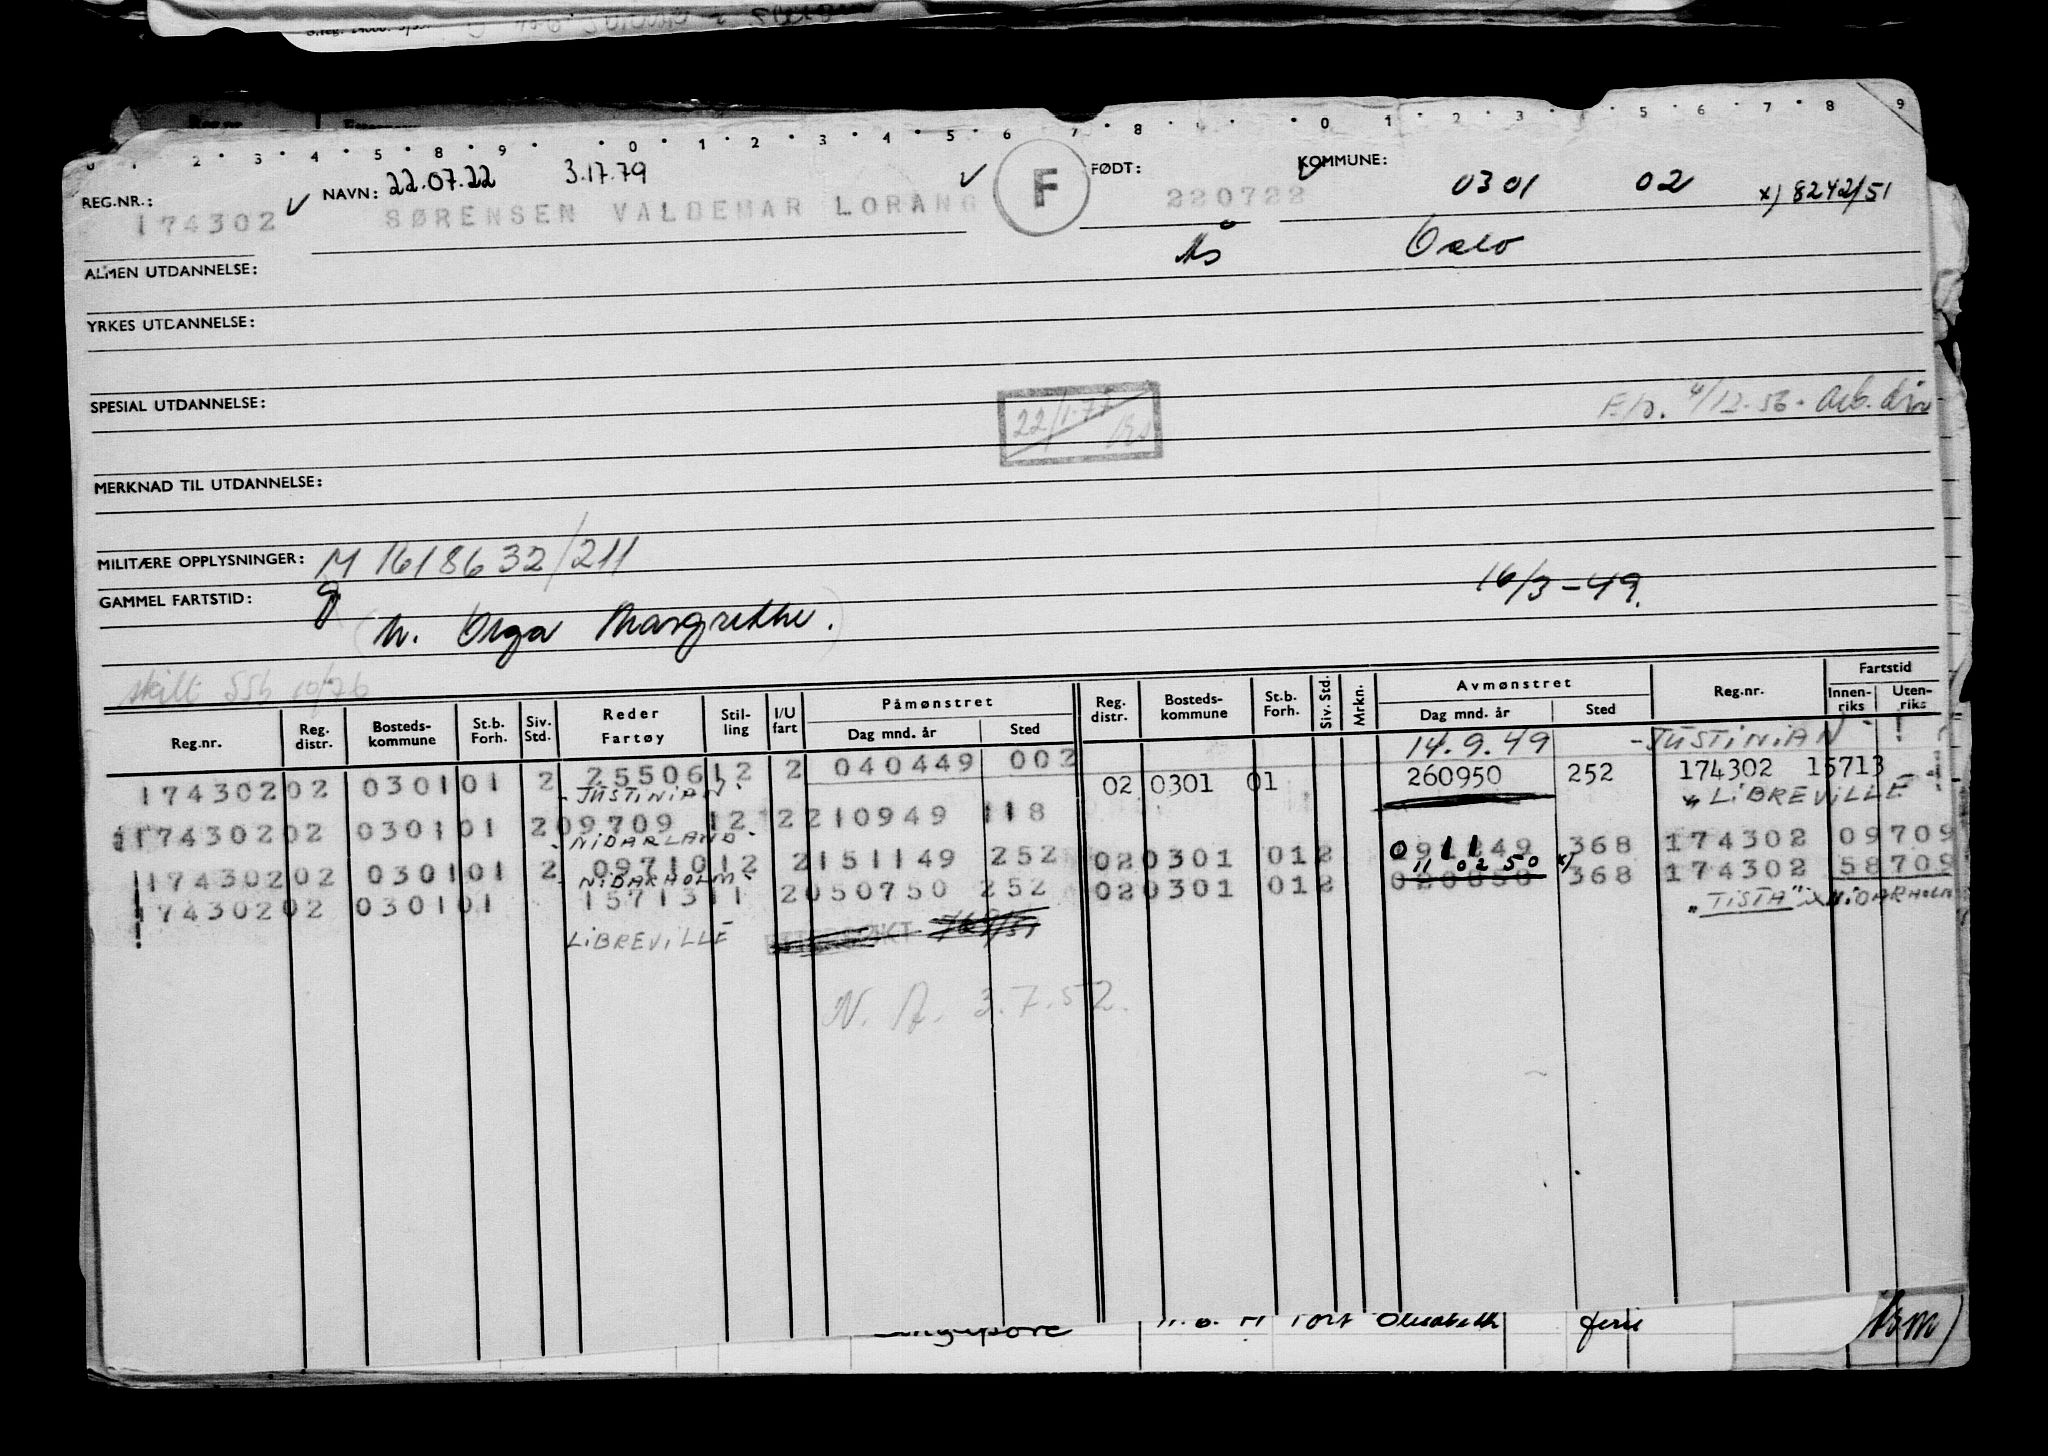 0 · 2 · 3 · 4 · 5 · 8 · 9 · · 0 · 1 · 2 · 3 · 4 · 5 · 6 · 7 · 8 · · · · 0 · 1 · 2 · 3 · · 5 · 6 · 7 · 8 · 9
REG.NR.: 174302
NAVN: 22.07.22 3.17.79
SØRENSEN VALDEMAR LORANG
F
FØDT: 220722
Ås
KOMMUNE: 0301 02 x) 8242/51
Oslo
ALMEN UTDANNELSE:
YRKES UTDANNELSE:
SPESIAL UTDANNELSE:
4/12-56. Arb.dir
MERKNAD TIL UTDANNELSE:
MILITÆRE OPPLYSNINGER: M 1618632/211
GAMMEL FARTSTID:
16/3-49.
M. Olga Margrethe.
skilt SSB 10/76
Reg.nr. Reg. distr. Bosteds- kommune St.b. Forh. Siv. Std. Reder Fartøy Stil- ling I/U fart Påmønstret Dag mnd. år Sted Reg. distr. Bosteds- kommune St.b. Forh. Siv. Std. Mrkn. Avmønstret Dag mnd. år Sted Reg.nr. Fartstid Innen- riks Uten- riks
14.9.49 - JUSTINIAN -
174302 02 0301 01 2 25506 12 2 040449 002 02 0301 01 260950 252 174302 15713
- JUSTINIAN - " LIBREVILLE
174302 02 0301 01 2 09709 12 2 210949 118 0 11 49 368 174302 09709
- NIDARLAND - 11 02 50 x)
174302 02 0301 01 2 09710 12 2 151149 252 02 0301 01 2
- NIDARHOLM -
368 174302 58709
174302 02 0301 01 15713 11 2 050750 252 02 0301 01 2
" TISTA " NIDARHOLM
LIBREVILLE
N. A. 3.7.52.
Singapore Port Elisabeth